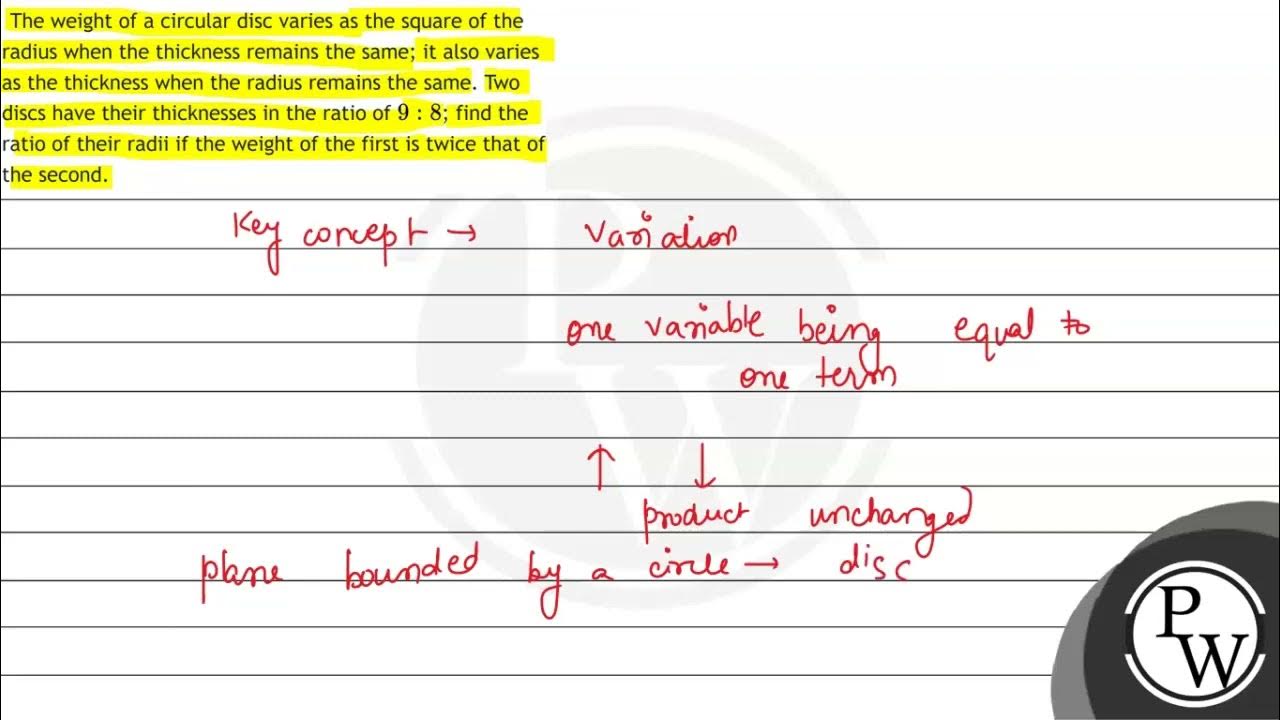 The weight of a circular disc varies as the square of the
radius when the thickness remains the same; it also varies
as the thickness when the radius remains the same. Two
discs have their thicknesses in the ratio of 9 : 8; find the
ratio of their radii if the weight of the first is twice that of
the second.
Key concept → Variation
one variable being equal to
one term
↑ ↓
product unchanged
plane bounded by a circle → disc
P
W